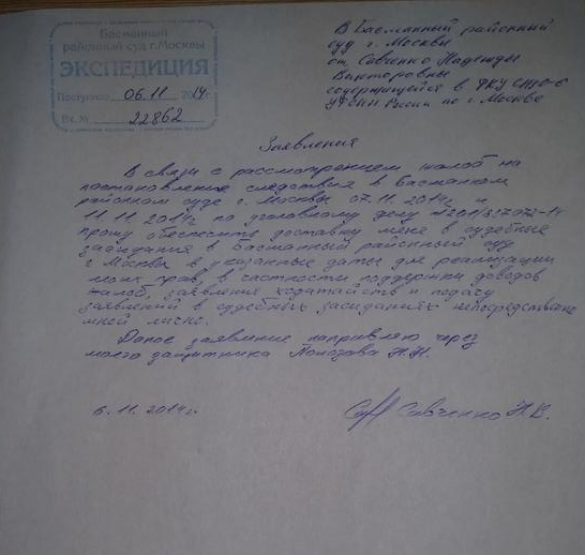 Басманный
районный суд г. Москвы
ЭКСПЕДИЦИЯ
Поступило 06.11 2014г.
Вх.№ 22862
В Басманный районный
суд г. Москвы
от Савченко Надежды
Викторовны
содержащейся в ФКУ СИЗО-6
УФСИН России по г. Москве
Заявления
В связи с рассмотрением жалоб на
постановление следствия в Басманном
районном суде г. Москвы 07.11.2014г. и
11.11.2014г. по уголовному делу
прошу обеспечить доставку меня в судебные
заседания в Басманный районный суд
г Москвы в указанные даты для реализации
моих прав, в частности поддержки доводов
жалоб, заявления ходатайств и подачу
заявлений в судебных заседаниях непосредственно
мной лично.
Даное заявление направляю через
моего защитника Полозова Н.Н.
6.11.2014г.
Савченко Н.В.